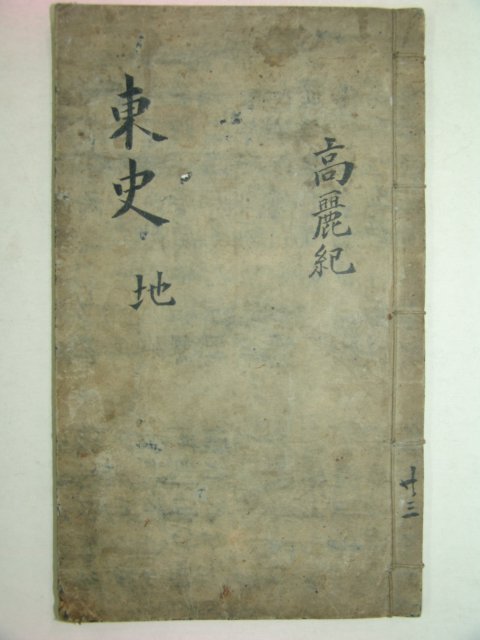 高麗紀
東史 地
卄三